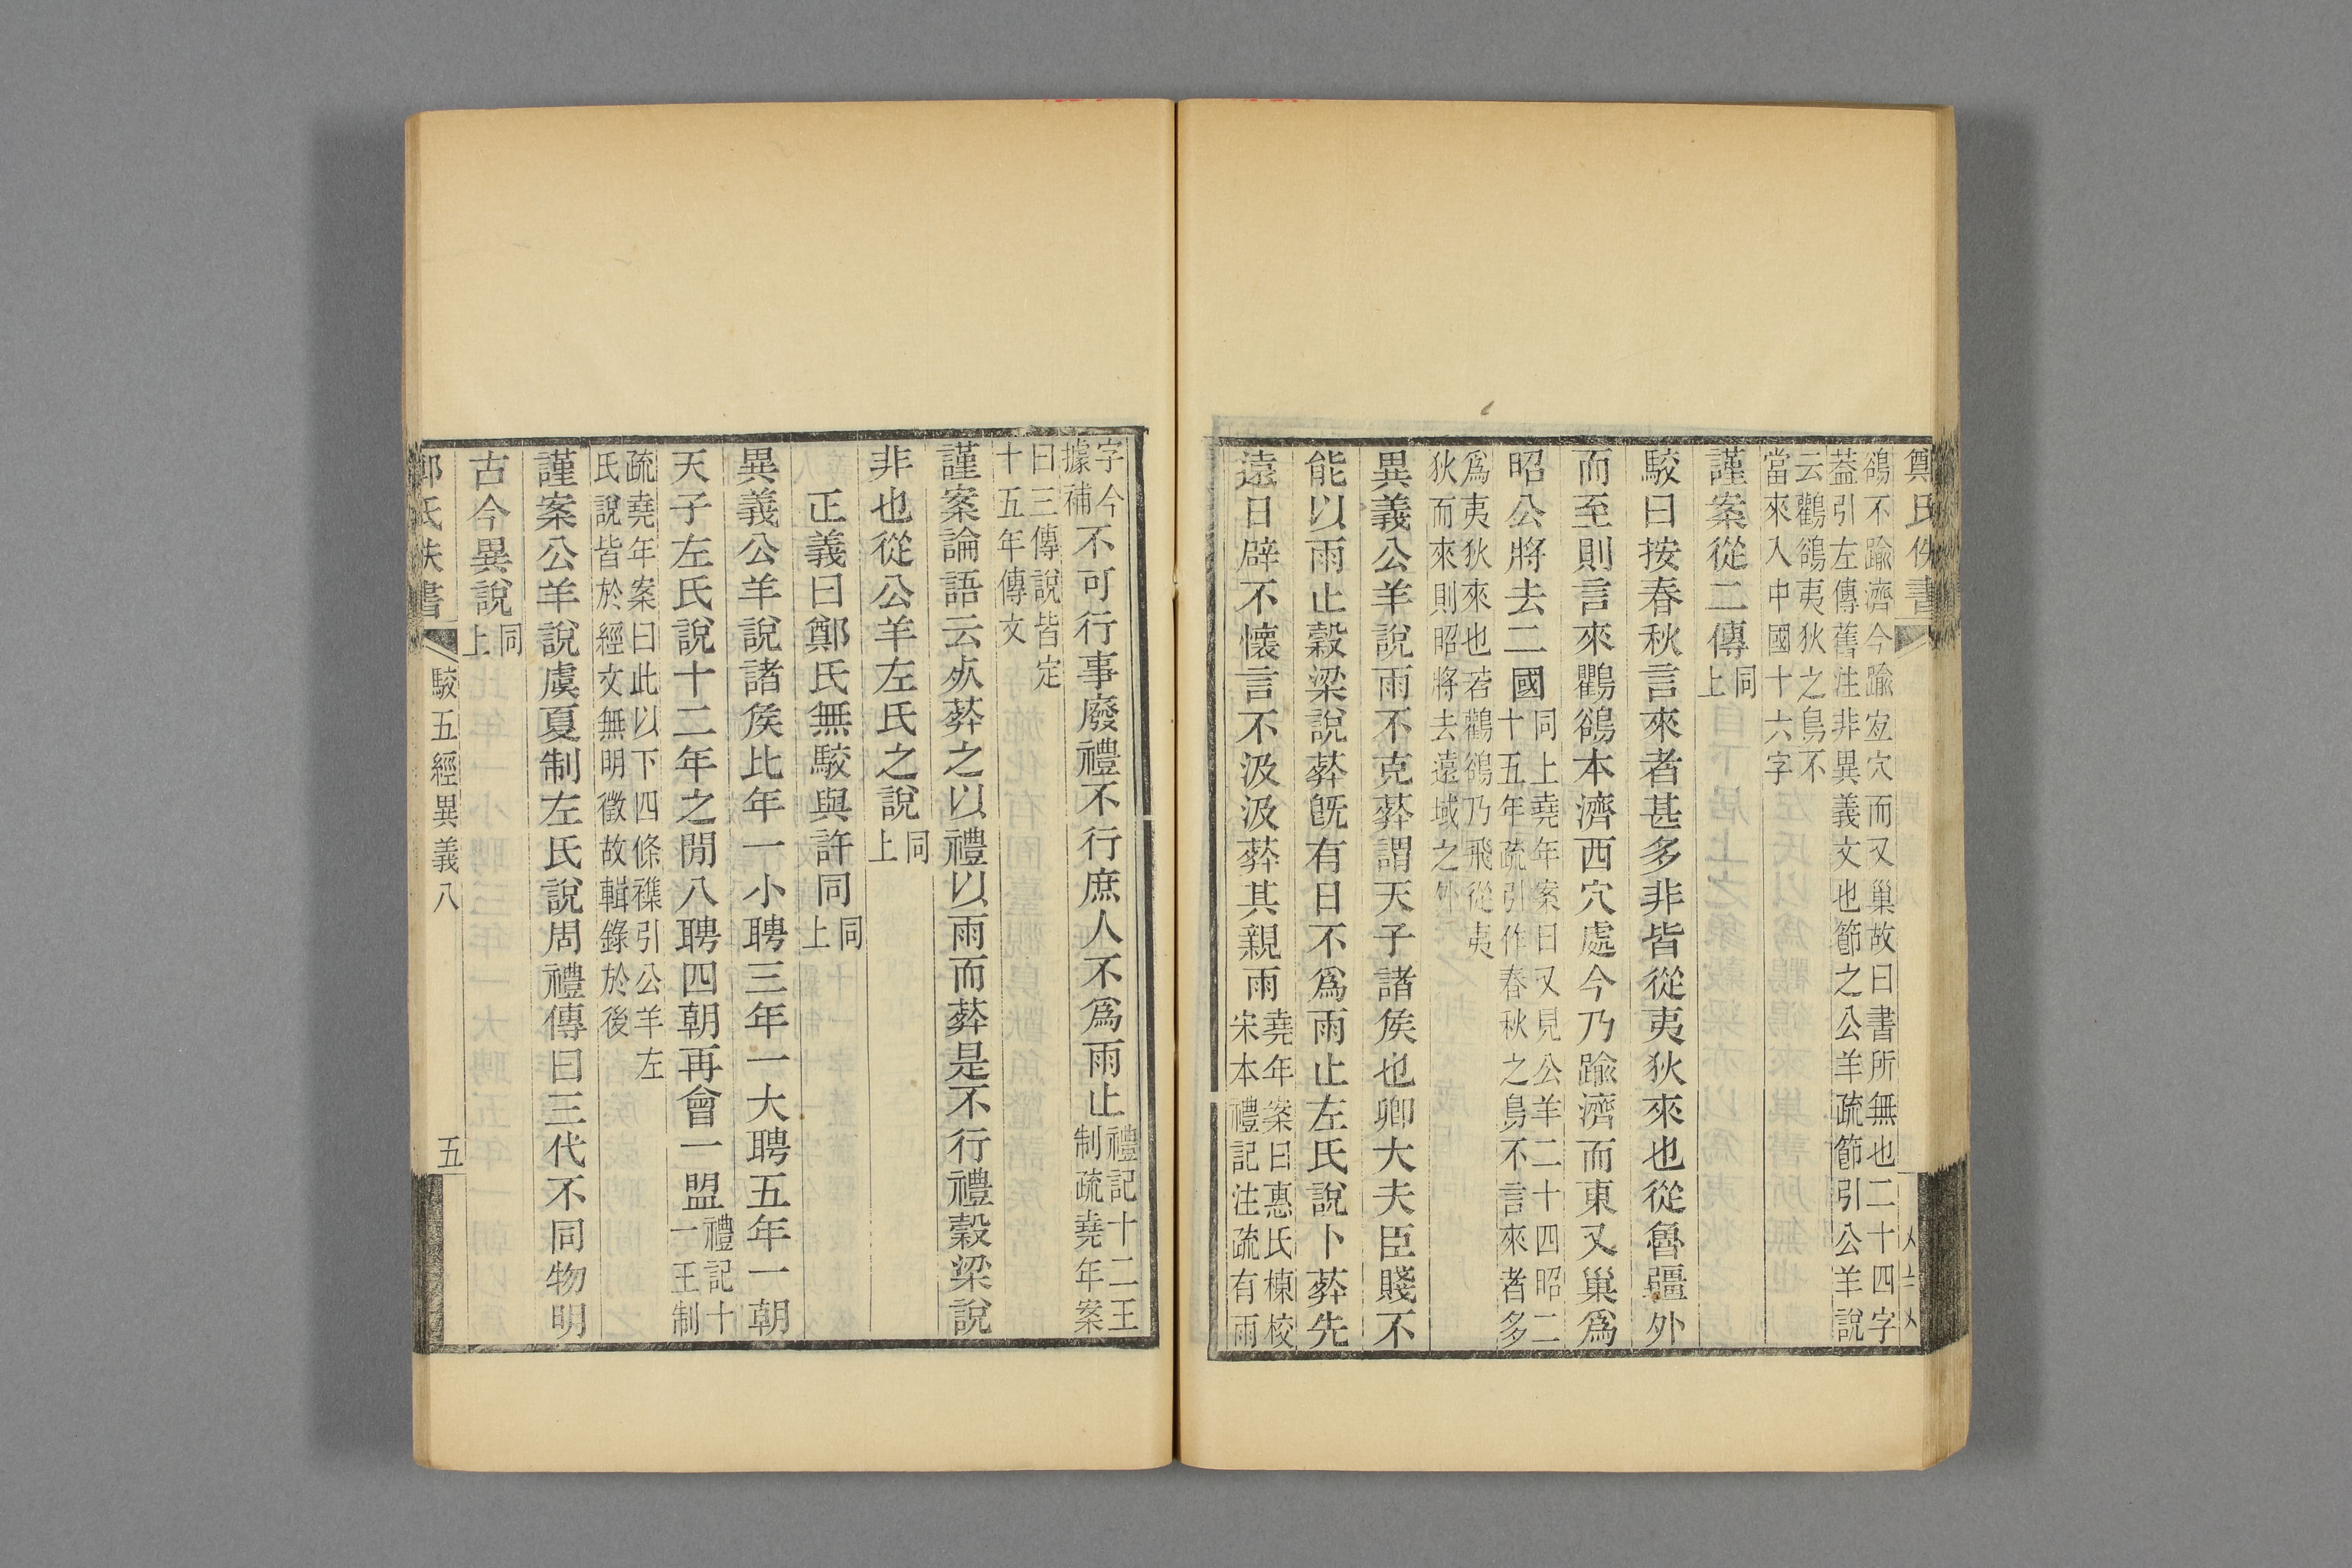 鄭氏佚書
鵒不踰濟今踰宐穴而又巢故曰書所無也二十四字
葢引左傳舊注非異義文也節之公羊疏節引公羊說
云鸛鵒夷狄之鳥不
當來入中國十六字
謹案從二傳同上
駮曰按春秋言來者甚多非皆從夷狄來也從魯疆外
而至則言來鸜鵒本濟西穴處今乃踰濟而東又巢爲
昭公將去二國同上堯年案曰又見公羊二十四昭二
十五年疏引作春秋之鳥不言來者多
爲夷狄來也若鸛鵒乃飛從夷
狄而來則昭將去遠域之外
異義公羊說雨不克葬謂天子諸矦也卿大夫臣賤不
能以雨止穀梁說葬旣有日不爲雨止左氏說卜葬先
遠日辟不懷言不汲汲葬其親雨堯年案曰惠氏棟校
宋本禮記注疏有雨
字今
據補不可行事廢禮不行庶人不爲雨止禮記十二王
制疏堯年案
曰三傳說皆定
十五年傳文
謹案論語云𣦸葬之以禮以雨而葬是不行禮穀梁說
非也從公羊左氏之說同上
正義曰鄭氏無駮與許同同上
異義公羊說諸矦比年一小聘三年一大聘五年一朝
天子左氏說十二年之閒八聘四朝再會一盟禮記十
一王制
疏堯年案曰此以下四條襍引公羊左
氏說皆於經文無明徵故輯錄於後
謹案公羊說虞夏制左氏說周禮傳曰三代不同物明
古今異說同上
駮五經異義八
五